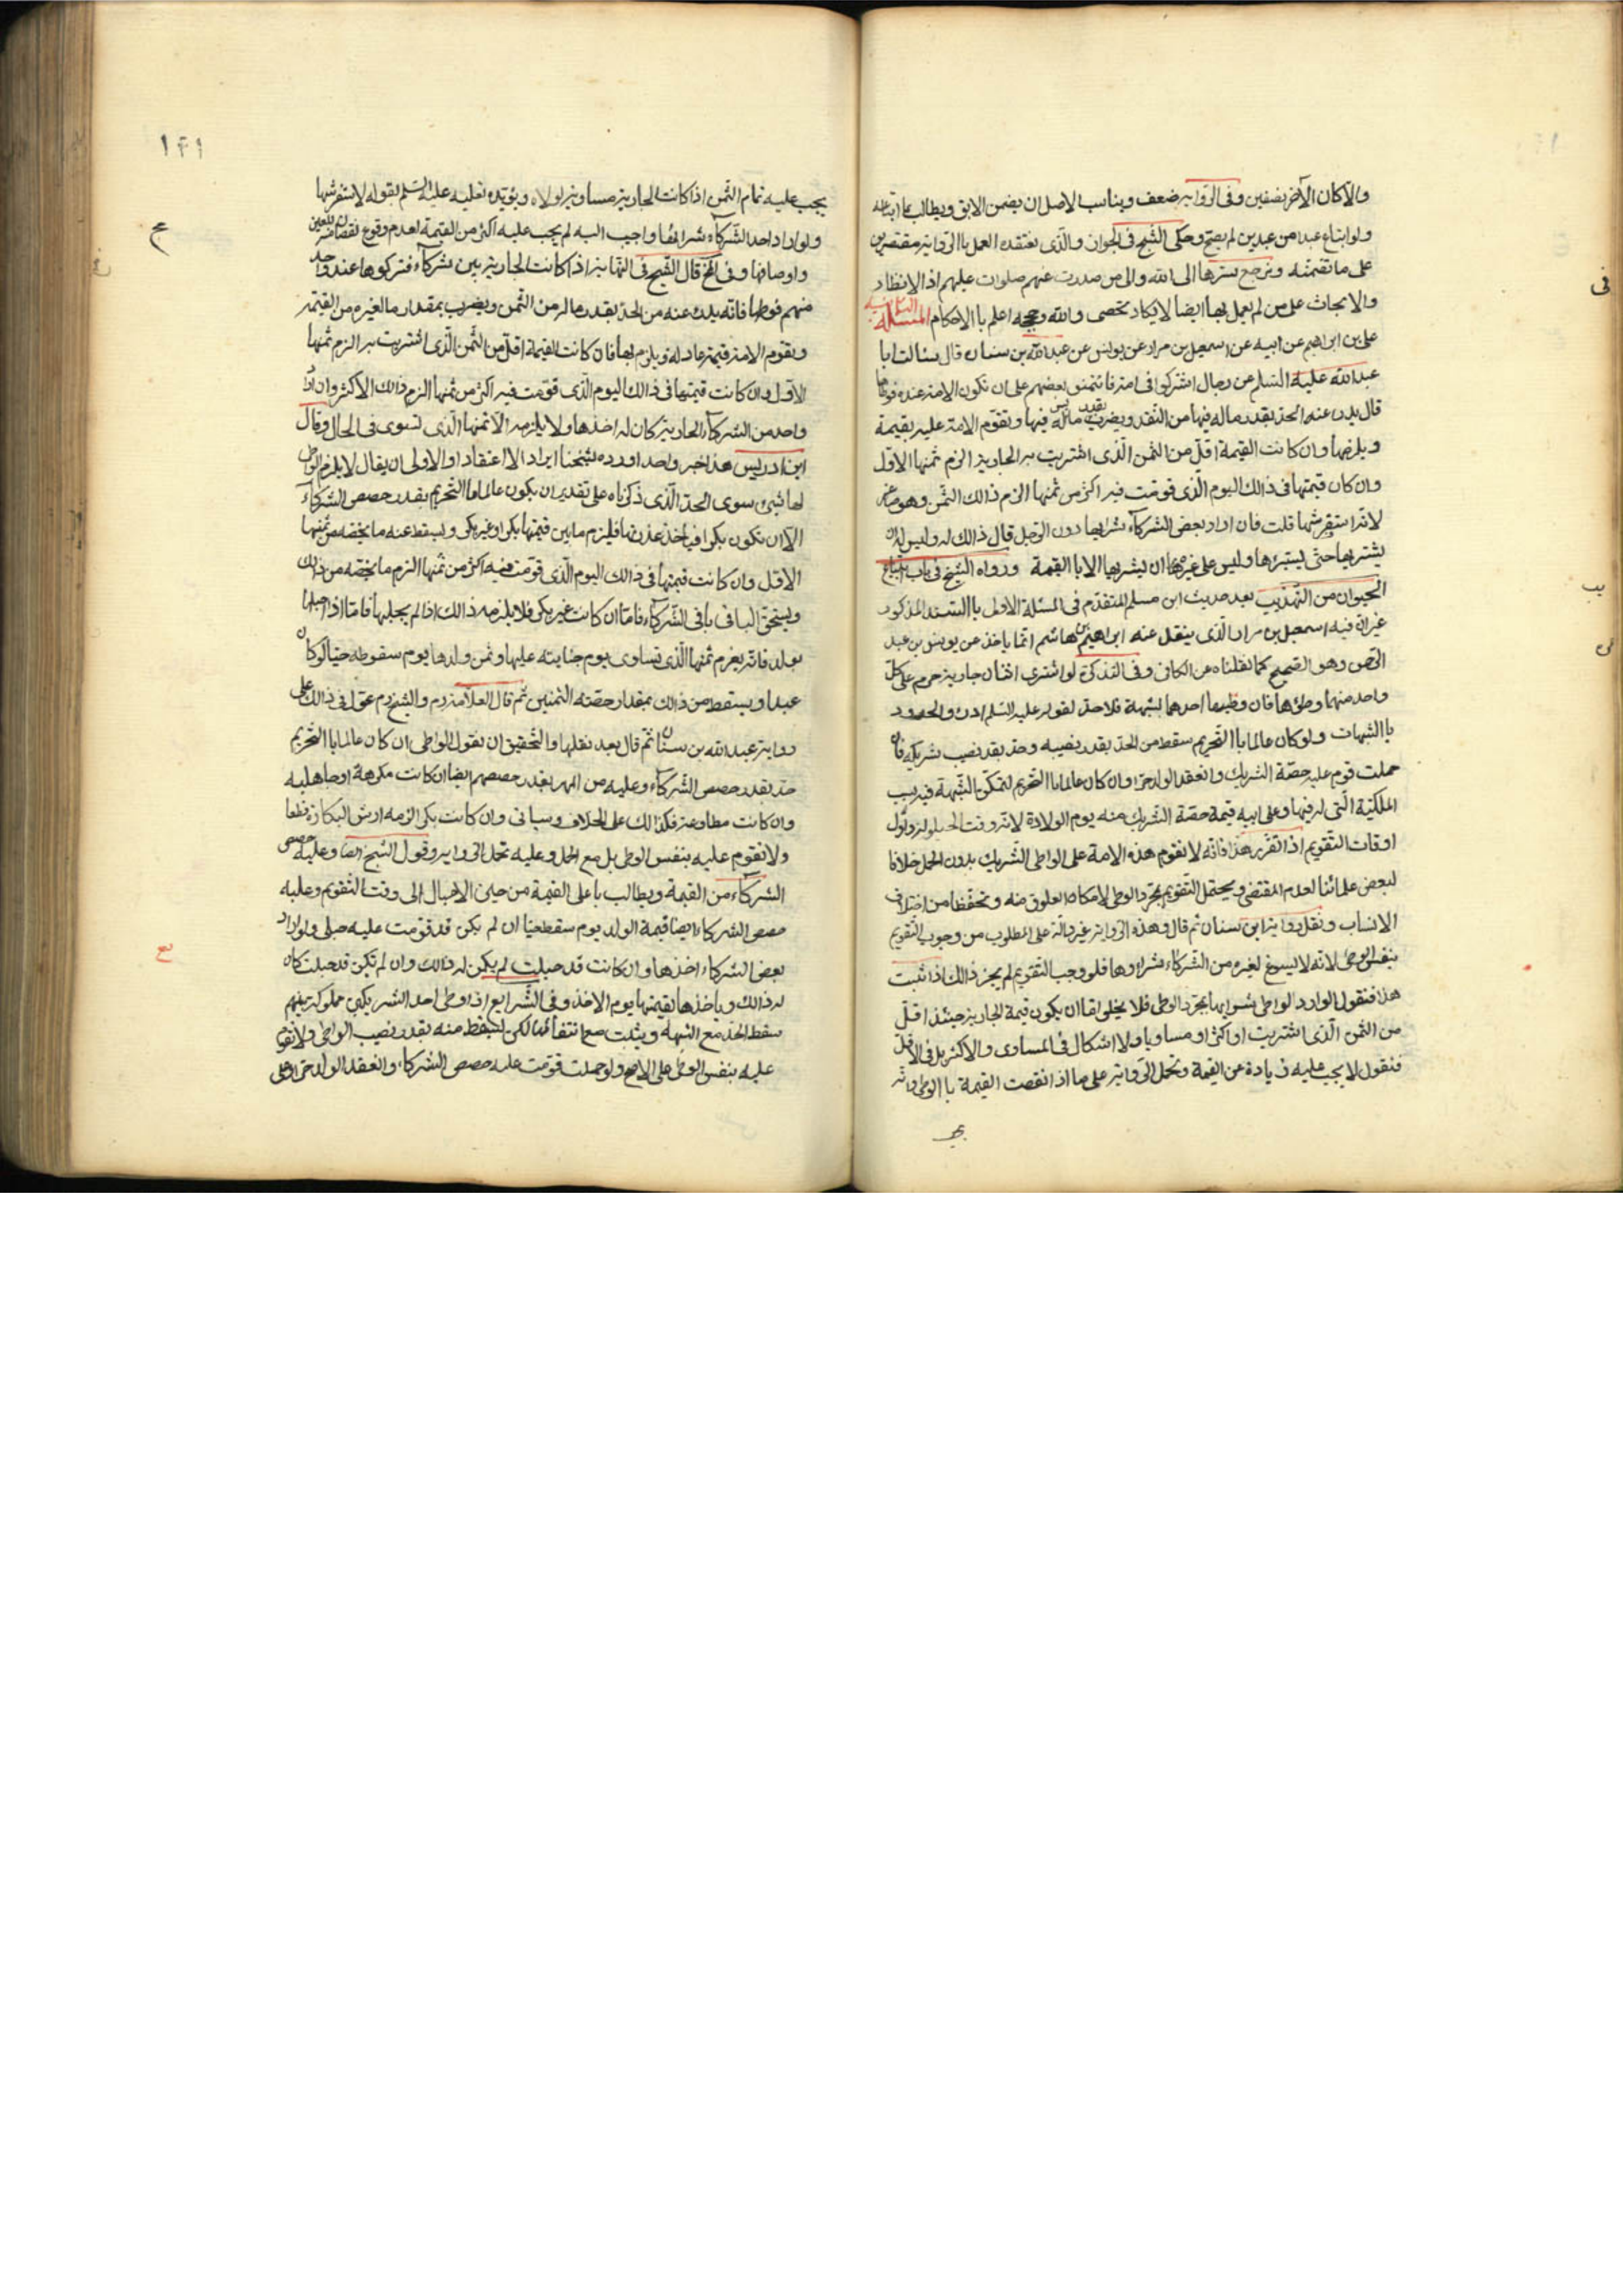 والا كان الآخر نصفين وفى الرواية ضعف ويناسب الاصل ان يضمن الابق ويطالب بما ابتاعه
ولو ابتاع عبدا من عبدين لم يصح وحكى الشيخ فى الجواز والذى نعتقده العمل باالرواية مقتصرين
على ما تضمنته ونرجع سرها الى الله والى من صدرت عنهم صلوات عليهم اذ الانظار
والابحاث على من لم يعمل بها ايضا لا يكاد تحصى والله وحججه اعلم باالاحكام المسئلة الثانية
على بن ابراهيم عن ابيه عن اسمعيل بن مرار عن يونس عن عبدالله بن سنان قال سئالت ابا
عبدالله عليه السلم عن رجال اشتركوا فى امة فائتمنوا بعضهم على ان تكون الامة عنده فوطئها
قال يدرء عنه الحد بقدر ماله فيها من النقد ويضرب بقدر ما ليس له فيها وتقوم الامة عليه بقيمة
ويلزمها وان كانت القيمة اقل من الثمن الذى اشتريت به الجارية الزم ثمنها الاول
وان كان قيمتها فى ذالك اليوم الذى قومت فيه اكثر من ثمنها الزم ذالك الثمن وهو صاغر
لانه استفرشها قلت فان اراد بعض الشركاء شرائها دون الرجل قال ذالك له وليس له ان
يشتريها حتى يستبرئها وليس على غيره ان يشتريها الا باالقيمة ورواه الشيخ فى باب ابتياع
الحيوان من التهذيب بعد حديث ابن مسلم المتقدم فى المسئلة الاولى باالسند المذكور
غير ان فيه اسمعيل بن مرار الذى ينقل عنه ابراهيم بن هاشم انما ياخذ عن يونس بن عبد
الرحمن وهو الصحيح كما نقلناه عن الكافى وفى التذكرة لو اشترى اثنان جارية حرم على كل
واحد منهما وطئها فان وطئها احدهما لشبهة فلا حد لقوله عليه السلم ادرؤا الحدود
باالشبهات ولو كان عالما باالتحريم سقط من الحد بقدر نصيبه وحد بقدر نصيب شريكه فان
حملت قوم عليه حصة الشريك وانعقد الولد حرا وان كان عالما باالتحريم لتمكن الشبهة فيه بسبب
الملكية التى له فيها وعلى ابيه قيمة حصة الشريك منه يوم الولادة لانه وقت الحيلولة واول
اوقات التقويم اذا تقرر هذا فانه لا تقوم هذه الامة على الواطى الشريك بدون الحمل خلافا
لبعض علمائنا لعدم المقتضى ويحتمل التقويم بمجرد الوطى لامكان العلوق منه وتحفظا من اختلاف
الانساب ونقل رواية ابن سنان ثم قال وهذه الرواية غير دالة على المطلوب من وجوب التقويم
بنفس الوطى لانه لا يسوغ لغيره من الشركاء شراؤها فلو وجب التقويم لم يجز ذالك اذا ثبت
هذا فنقول لو اراد الواطى شرائها بمجرد الوطى فلا يخلو اما ان يكون قيمة الجارية حينئذ اقل
من الثمن الذى اشتريت او اكثر او مساويا ولا اشكال فى المساوى والاكثر بل فى الاقل
فنقول لا يجب عليه زيادة عن القيمة وتحمل الرواية على ما اذا نقصت القيمة باالوطى فانه
يجب
١٣١
يجب عليه تمام الثمن اذا كانت الجارية مساوية لولاه ويؤيده تعليله عليه السلم بقوله لاستفرشها
ولو اراد احد الشركاء شرائها واجيب اليه لم يجب عليه اكثر من القيمة لعدم وقوع نقصان للعين
واوصافها وفى لخ قال الشيخ فى النهاية اذا كانت الجارية بين شركاء فتركوها عند واحد
منهم فوطئها فانه يدرء عنه من الحد بقدر ماله من الثمن ويضرب بمقدار ما لغيره من القيمة
وتقوم الامة قيمة عادلة ويلزم بها فان كانت القيمة اقل من الثمن الذى اشتريت به الزم ثمنها
الاول وان كانت قيمتها فى ذالك اليوم الذى قومت فيه اكثر من ثمنها الزم ذالك الاكثر وان اراد
واحد من الشركاء الجارية كان له اخذها ولا يلزمه الا ثمنها الذى تسوى فى الحال وقال
ابن ادريس هذا خبر واحد اورده شيخنا ايرادا لا اعتقادا والاولى ان يقال لا يلزم الواطى
لها شىء سوى الحد الذى ذكرناه على تقدير ان يكون عالما باالتحريم بقدر حصص الشركاء
الا ان تكون بكرا فياخذ عذرتها فيلزم ما بين قيمتها بكرا وغير بكر ويسقط عنه ما يخصه من ثمنها
الاقل وان كانت قيمتها فى ذالك اليوم الذى قومت فيه اكثر من ثمنها الزم ما يخصه من ذالك
ويستحق الباقى باقى الشركاء فاما ان كانت غير بكر فلا يلزمه ذالك اذا لم يحبلها فاما اذا احبلها
بولد فانه يغرم ثمنها الذى تساوى يوم جنايته عليها وثمن ولدها يوم سقوطه حيا لو كان
عبدا ويسقط من ذالك بمقدار حصته الثمنين ثم قال العلامة ره والشيخ ره عول فى ذالك على
رواية عبدالله بن سنان ثم قال بعد نقلها والتحقيق ان نقول الواطى ان كان عالما باالتحريم
حد بقدر حصص الشركاء وعليه من المهر بقدر حصصهم ايضا ان كانت مكرهة او جاهلية
وان كانت مطاوعة فكذالك على الخلاف وسياتى وان كانت بكرا لزمه ارش البكارة قطعا
ولا تقوم عليه بنفس الوطى بل مع الحمل وعليه تحمل الرواية وقول الشيخ ايضا وعليه حصص
الشركاء من القيمة ويطالب باعلى القيمة من حين الاحبال الى وقت التقويم وعليه
حصص الشركاء ايضا قيمة الولد يوم سقط حيا ان لم يكن قد قومت عليه حبلى ولو اراد
بعض الشركاء اخذها وان كانت قد حبلت لم يكن له ذالك وان لم تكن قد حبلت كان
له ذالك وياخذها بقيمتها يوم الاخذ وفى الشرايع اذا وطى احد الشريكين مملوكة بينهم
سقط الحد مع الشبهة ويثبت مع انتفائها لكن يسقط منه بقدر نصيب الواطى ولا تقوم
عليه بنفس الوطى على الاصح ولو حملت قومت عليه حصص الشركاء وانعقد الولد حرا وعلى